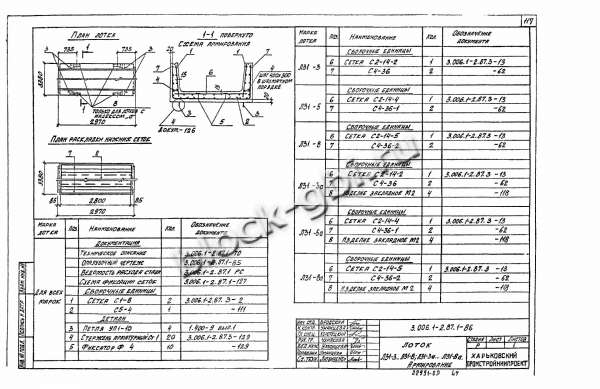 117
План лотка
1-1 повернуто
Схема армирования
735
1
735
3
3
20
7
7
4
6
15
4
шаг 400÷500
в шахматном
порядке
3380
1
8
только для лотков с
индексом "а"
2970
3
4
5
2
Докум.-126
План раскладки нижних сеток
2
1
3380
85
2800
85
2970
Марка лотка
Поз.
Наименование
Кол.
Обозначение документа
Для всех марок
Документация
Техническое описание
Опалубочный чертеж
Ведомость расхода стали
3.006.1-2.87.1 РС
Схема фиксации сеток
3.006.1-2.87.1-127
Сборочные единицы
1 Сетка С1-8 2 3.006.1-2.87.3-2
2 С5-4 1 -111
Детали
3 Петля УП1-10 4 1.400-9 вып.1
4 Стержень арматурный Ст 1 20 3.006.1-2.87.3-129
5 Фиксатор Ф 4 10
Марка лотка
Поз.
Наименование
Кол.
Обозначение документа
Л31-3
Сборочные единицы
6 Сетка С2-14-2 1 3.006.1-2.87.3-13
7 С4-36 2 -62
Л31-5
Сборочные единицы
6 Сетка С2-14-4 1 3.006.1-2.87.3-13
7 С4-36-1 2 -62
Л31-8
Сборочные единицы
6 Сетка С2-14-5 1 3.006.1-2.87.3-13
7 С4-36-2 2 -62
Л31-3а
Сборочные единицы
6 Сетка С2-14-2 1 3.006.1-2.87.3-13
7 С4-36 2 -62
8 Изделие закладное М2 4 -118
Л31-5а
Сборочные единицы
6 Сетка С2-14-4 1 3.006.1-2.87.3-13
7 С4-36-1 2 -62
8 Изделие закладное М2 4 -118
Л31-8а
Сборочные единицы
6 Сетка С2-14-5 1 3.006.1-2.87.3-13
7 С4-36-2 2 -62
8 Изделие закладное М2 4 -118
3.006.1-2.87.1-86
Лоток
Армирование
Стадия Лист Листов
Р 1
Харьковский
Промстройниипроект